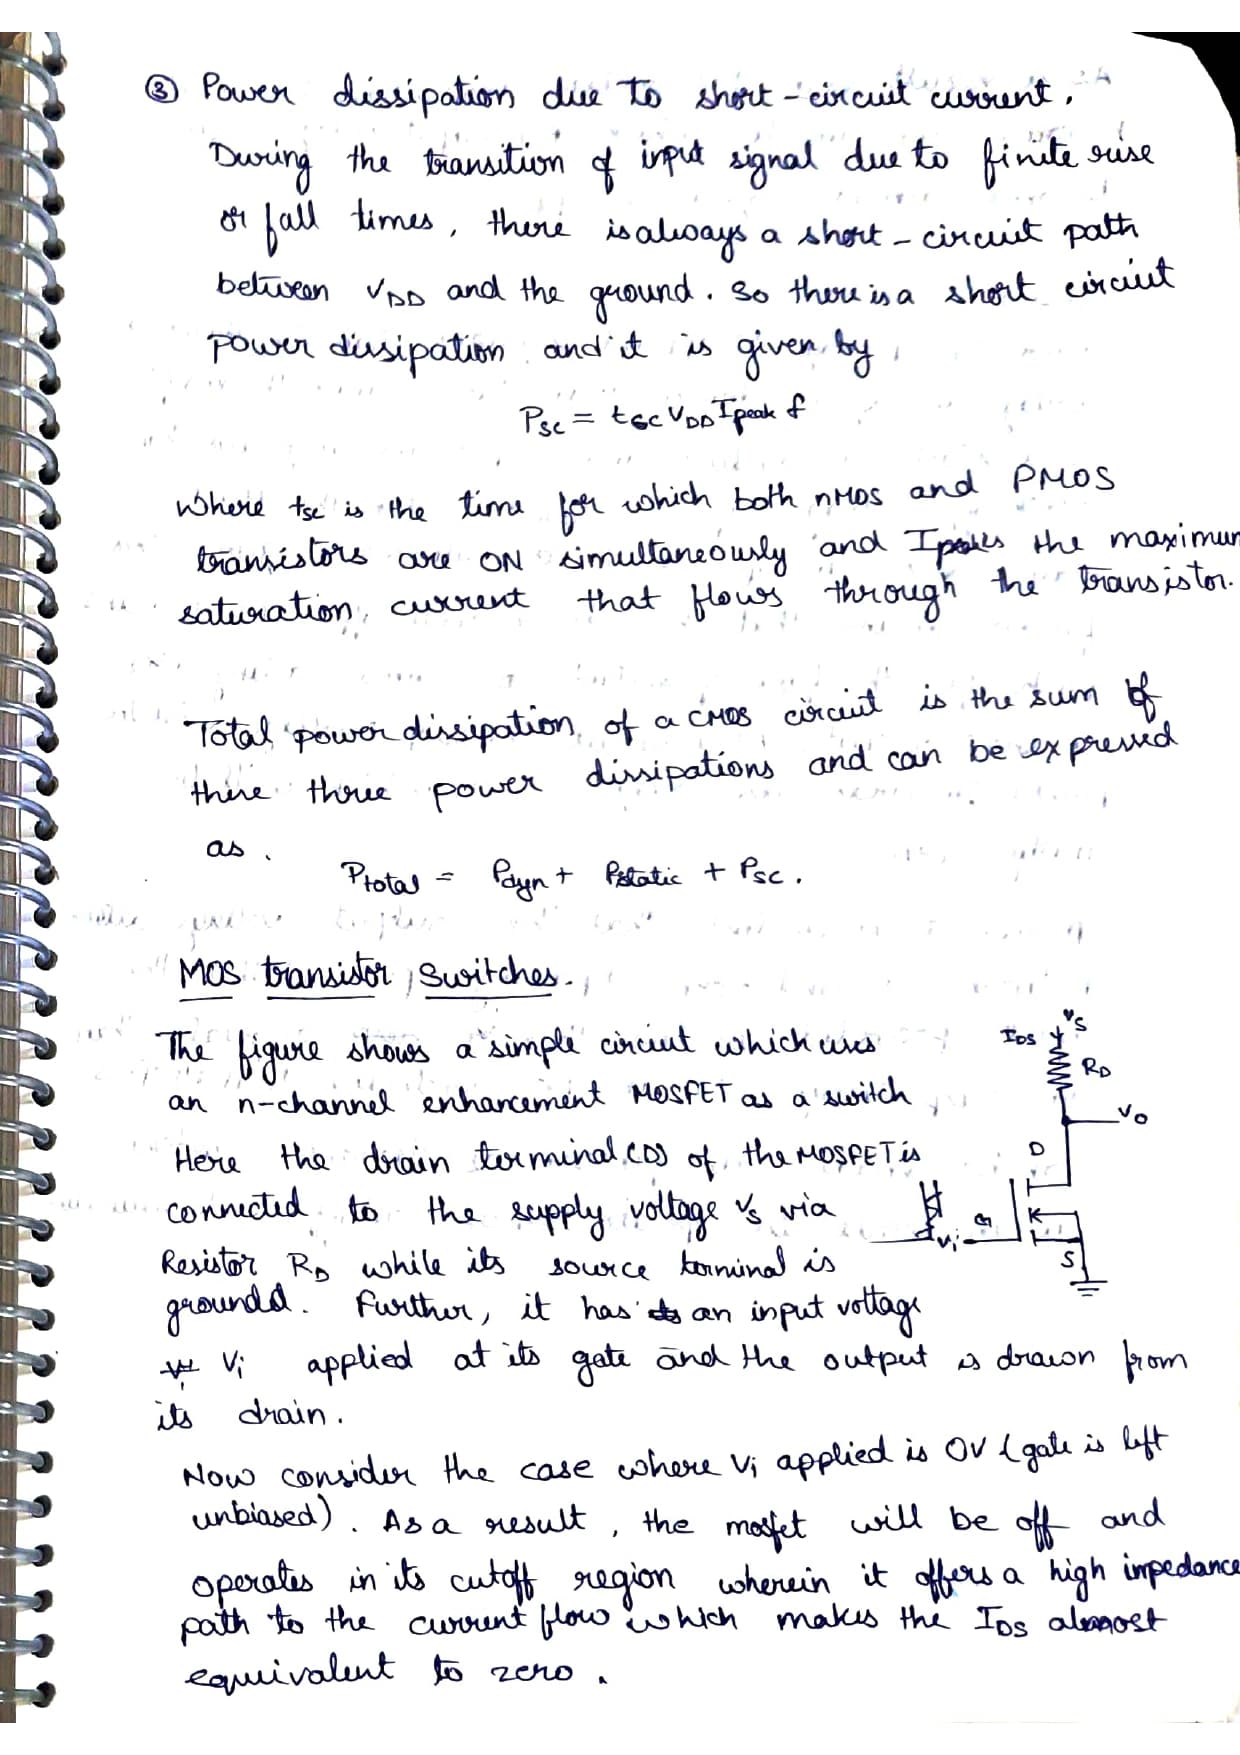 ③ Power dissipation due to short-circuit current.
During the transition of input signal due to finite rise
or fall times, there is always a short-circuit path
between VDD and the ground. So there is a short circuit
power dissipation and it is given by
Psc = tsc VDD Ipeak f
Where tsc is the time for which both nMOS and PMOS
transistors are ON simultaneously and Ipeak is the maximum
saturation current that flows through the transistor.
Total power dissipation of a CMOS circuit is the sum of
these three power dissipations and can be expressed
as.
Ptotal = Pdyn + Pstatic + Psc.
MOS transistor Switches.
The figure shows a simple circuit which uses
an n-channel enhancement MOSFET as a switch
Here the drain terminal (D) of the MOSFET is
connected to the supply voltage Vs via
Resistor RD while its source terminal is
groundd. Further, it has an input voltage
Vi applied at its gate and the output is drawn from
its drain.
IDS
Vs
RD
Vo
D
G
Vi
S
Now consider the case where Vi applied is 0V (gate is left
unbiased). As a result, the mosfet will be off and
operates in its cutoff region wherein it offers a high impedance
path to the current flow which makes the IDS almost
equivalent to zero.